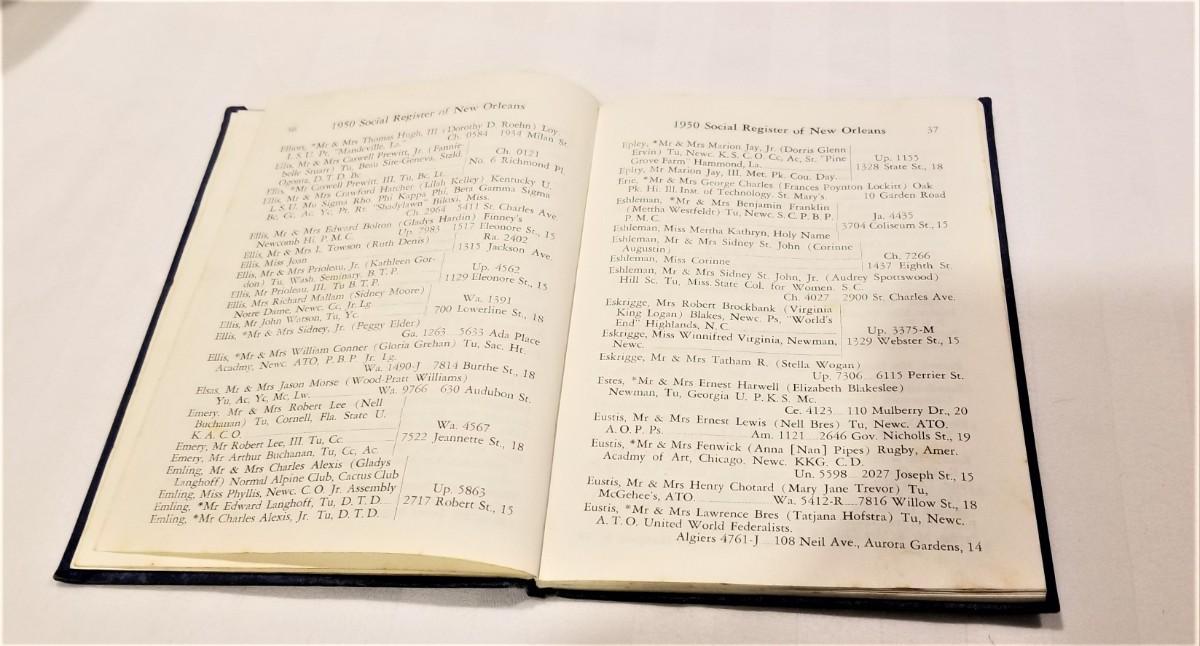 36 1950 Social Register of New Orleans
Elliott, *Mr & Mrs Thomas Hugh, III (Dorothy D. Roehn) Loy.
L. S. U. Pr. "Mandeville, La." Ch. 0584 1934 Milan St.
Ellis, Mr & Mrs Caswell Prewitt, Jr. (Fannie-
belle Stuart) Tu, Beau Site-Geneva, Szald. Ch. 0121
Ogontz, D. T. D. Bc. No. 6 Richmond Pl.
Ellis, *Mr Caswell Prewitt, III. Tu, Bc, Lt.
Ellis, Mr & Mrs Crawford Hatcher (Lilah Kelley) Kentucky U.
L. S. U. Mu Sigma Rho. Phi Kappa Phi, Beta Gamma Sigma
Bc, Cc, Ac, Yc, Pt, Rt. "Shadylawn" Biloxi, Miss.
Ch. 2964 5411 St. Charles Ave.
Ellis, Mr & Mrs Edward Bolton (Gladys Hardin) Finney's
Newcomb Hi. P. M. C. Up. 7983 1517 Eleonore St., 15
Ellis, Mr & Mrs I. Towson (Ruth Denis) Ra. 2402
Ellis, Miss Joan 1315 Jackson Ave.
Ellis, Mr & Mrs Prioleau, Jr. (Kathleen Gor-
don) Tu, Wash. Seminary. B. T. P. Up. 4562
Ellis, Mr Prioleau, III. Tu B. T. P. 1129 Eleonore St., 15
Ellis, Mrs Richard Mallam (Sidney Moore) Wa. 1391
Notre Dame, Newc. Cc, Jr. Lg. 700 Lowerline St., 18
Ellis, Mr John Watson, Tu, Yc.
Ellis, *Mr & Mrs Sidney, Jr. (Peggy Elder)
Ga. 1263 5633 Ada Place
Ellis, *Mr & Mrs William Conner (Gloria Grehan) Tu, Sac. Ht.
Acadmy, Newc. ATO, P. B. P Jr. Lg.
Wa. 1490-J 7814 Burthe St., 18
Elsas, Mr & Mrs Jason Morse (Wood-Pratt Williams)
Yu, Ac, Yc, Mc, Lw. Wa. 9766 630 Audubon St.
Emery, Mr & Mrs Robert Lee (Nell
Buchanan) Tu, Cornell, Fla. State U.
K. A. C. O. Wa. 4567
Emery, Mr Robert Lee, III. Tu, Cc. 7522 Jeannette St., 18
Emery, Mr Arthur Buchanan, Tu, Cc, Ac.
Emling, Mr & Mrs Charles Alexis (Gladys
Langhoff) Normal Alpine Club, Cactus Club
Emling, Miss Phyllis, Newc. C. O. Jr. Assembly Up. 5863
Emling, *Mr Edward Langhoff, Tu, D. T. D. 2717 Robert St., 15
Emling, *Mr Charles Alexis, Jr. Tu, D. T. D.
1950 Social Register of New Orleans 37
Epley, *Mr & Mrs Marion Jay, Jr. (Dorris Glenn
Ervin) Tu, Newc. K. S. C. O. Cc, Ac, St. "Pine Up. 1155
Grove Farm" Hammond, La. 1328 State St., 18
Eplty, Mr Marion Jay, III. Met. Pk. Cou. Day.
Eric, *Mr & Mrs George Charles (Frances Poynton Lockitt) Oak
Pk. Hi. Ill. Inst. of Technology. St. Mary's. 10 Garden Road
Eshleman, *Mr & Mrs Benjamin Franklin
(Mertha Westfeldt) Tu, Newc. S. C. P. B. P. Ja. 4435
P. M. C. 3704 Coliseum St., 15
Eshleman, Miss Mertha Kathryn, Holy Name
Eshleman, Mr & Mrs Sidney St. John (Corinne
Augustin) Ch. 7266
Eshleman, Miss Corinne 1437 Eighth St.
Eshleman, Mr & Mrs Sidney St. John, Jr. (Audrey Spottswood)
Hill Sc. Tu, Miss. State Col. for Women. S. C.
Ch. 4027 2900 St. Charles Ave.
Eskrigge, Mrs Robert Brockbank (Virginia
King Logan) Blakes, Newc. Ps, "World's
End" Highlands, N. C. Up. 3375-M
Eskrigge, Miss Winnifred Virginia, Newman, 1329 Webster St., 15
Newc.
Eskrigge, Mr & Mrs Tatham R. (Stella Wogan)
Up. 7306 6115 Perrier St.
Estes, *Mr & Mrs Ernest Harwell (Elizabeth Blakeslee)
Newman, Tu, Georgia U. P. K. S. Mc.
Ce. 4123 110 Mulberry Dr., 20
Eustis, Mr & Mrs Ernest Lewis (Nell Bres) Tu, Newc. ATO.
A. O. P. Ps. Am. 1121 2646 Gov. Nicholls St., 19
Eustis, *Mr & Mrs Fenwick (Anna [Nan] Pipes) Rugby, Amer.
Acadmy of Art, Chicago. Newc. KKG. C. D.
Un. 5598 2027 Joseph St., 15
Eustis, Mr & Mrs Henry Chotard (Mary Jane Trevor) Tu,
McGehee's, ATO Wa. 5412-R 7816 Willow St., 18
Eustis, *Mr & Mrs Lawrence Bres (Tatjana Hofstra) Tu, Newc.
A. T. O. United World Federalists.
Algiers 4761-J 108 Neil Ave., Aurora Gardens, 14